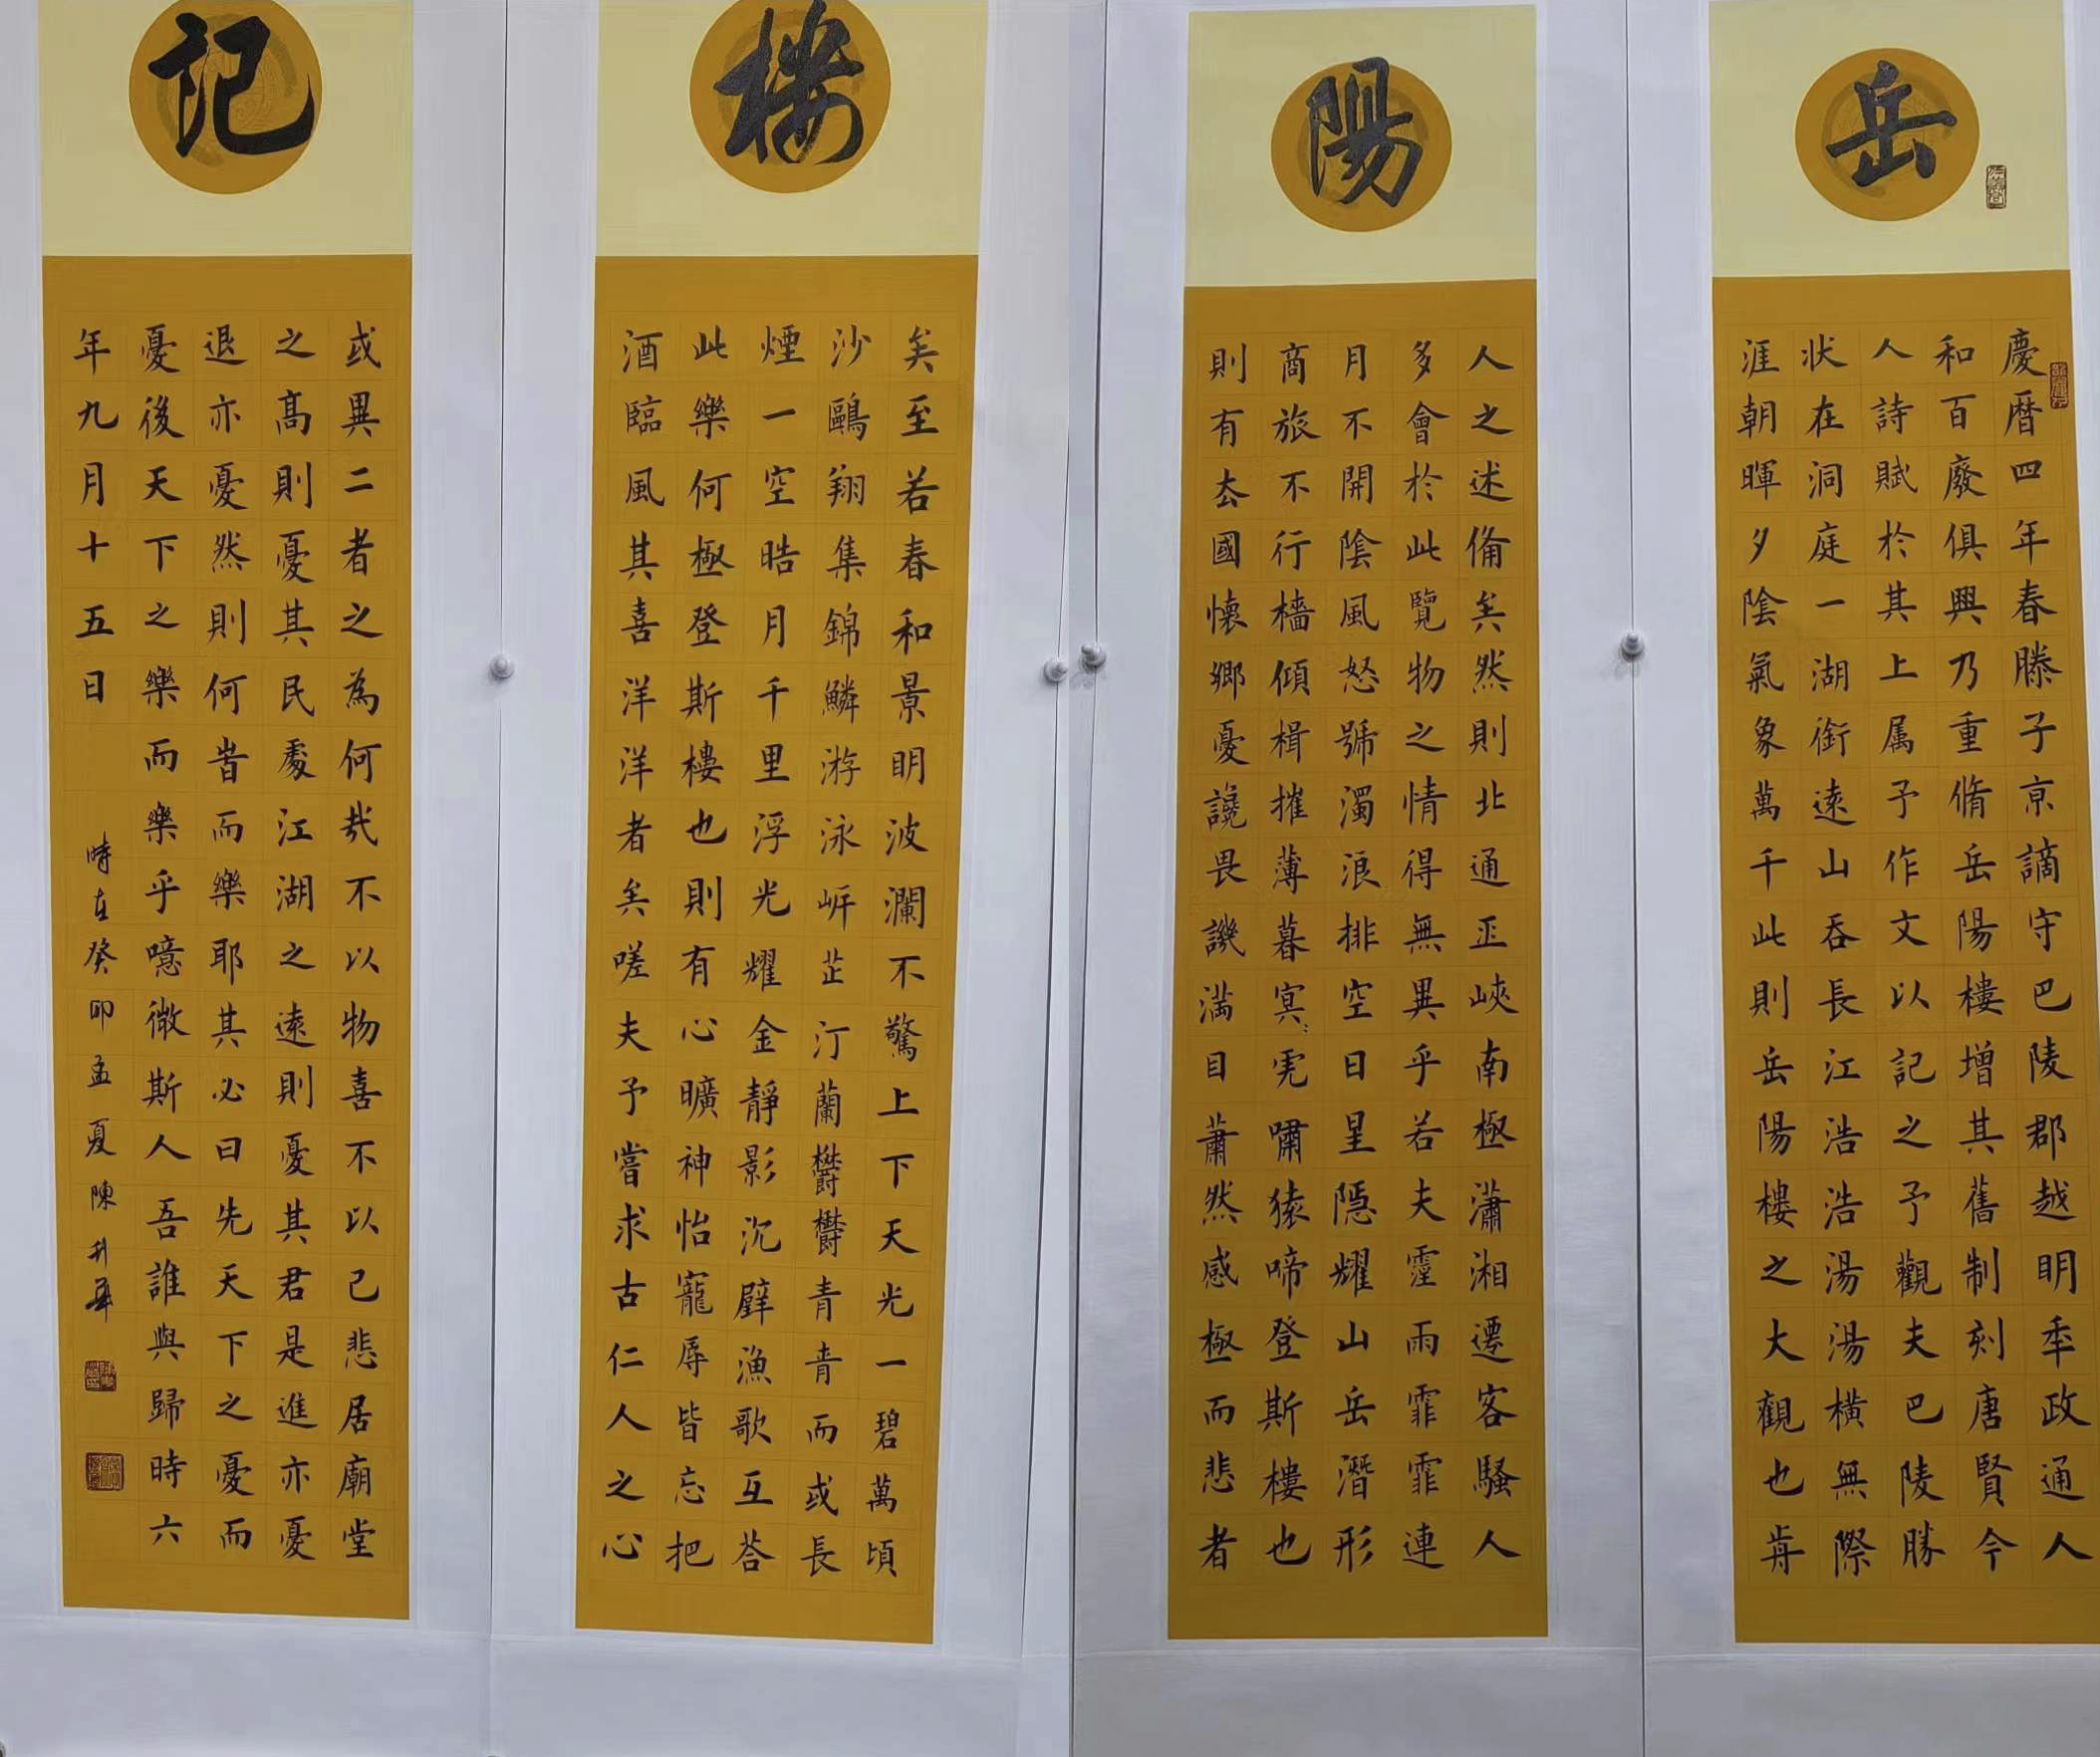 岳
慶曆四年春滕子京謫守巴陵郡越明年政通人
和百廢俱興乃重脩岳陽樓增其舊制刻唐賢今
人詩賦於其上属予作文以記之予觀夫巴陵勝
状在洞庭一湖銜遠山吞長江浩浩湯湯橫無際
涯朝暉夕陰氣象萬千此則岳陽樓之大觀也歬
陽
人之述備矣然則北通巫峽南極瀟湘遷客騷人
多會於此覽物之情得無異乎若夫霪雨霏霏連
月不開陰風怒號濁浪排空日星隱耀山岳潛形
商旅不行檣傾楫摧薄暮冥〻虎嘯猿啼登斯樓也
則有去國懷鄉憂讒畏譏滿目蕭然感極而悲者
樓
矣至若春和景明波瀾不驚上下天光一碧萬頃
沙鷗翔集錦鱗游泳岸芷汀蘭欝欝青青而或長
煙一空皓月千里浮光耀金靜影沉璧漁歌互答
此樂何極登斯樓也則有心曠神怡寵辱皆忘把
酒臨風其喜洋洋者矣嗟夫予嘗求古仁人之心
記
或異二者之為何哉不以物喜不以己悲居廟堂
之高則憂其民處江湖之遠則憂其君是進亦憂
退亦憂然則何旹而樂耶其必曰先天下之憂而
憂後天下之樂而樂乎噫微斯人吾誰與歸時六
年九月十五日
時在癸卯孟夏陳升華